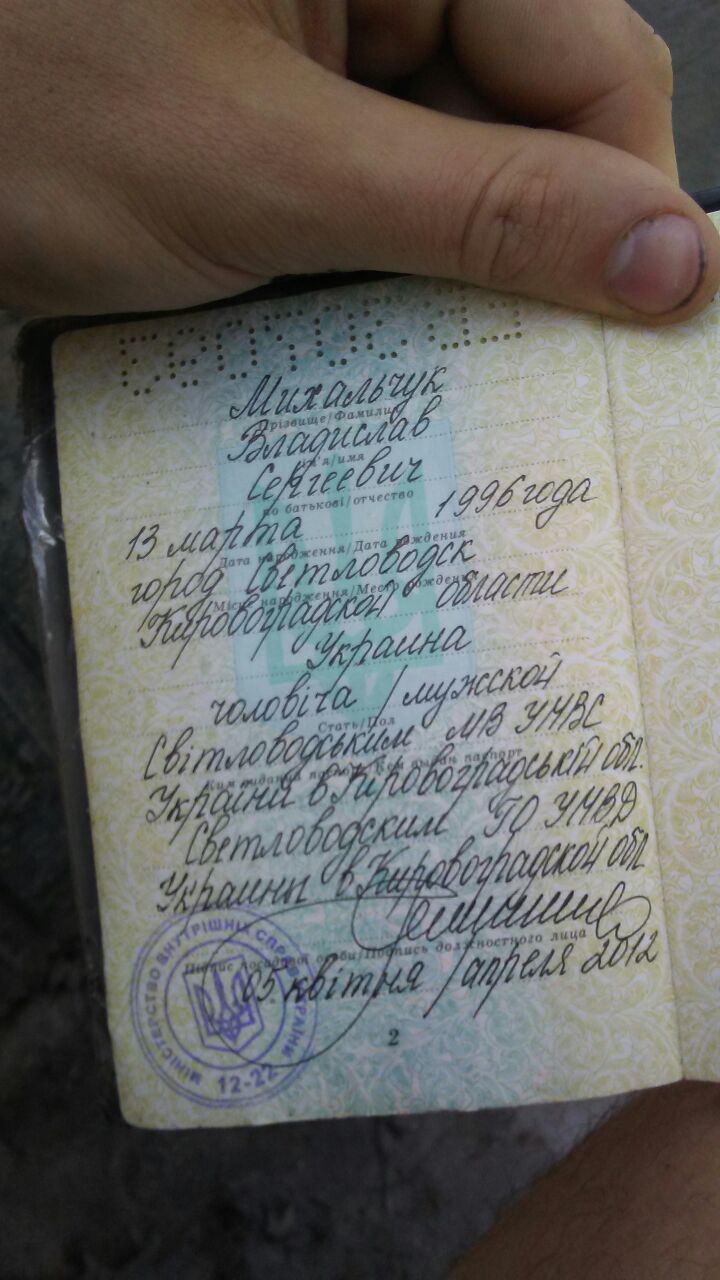 Михальчук
Прізвище/Фамилия
Владислав
Ім'я/имя
Сергеевич
по батькові/отчество
13 марта 1996 года
Дата народження/Дата рождения
город Светловодск
Місце народження/Место рождения
Кировоградской области
Украина
чоловіча / мужской
Стать/Пол
Світловодським МВ УМВС
Ким виданий паспорт/Кем выдан паспорт
України в Кіровоградській обл.
Светловодским ГО УМВД
Украины в Кировоградской обл
Підпис посадової особи/Подпись должностного лица
05 квітня / апреля 2012
2
МІНІСТЕРСТВО ВНУТРІШНІХ СПРАВ УКРАЇНИ
12-22